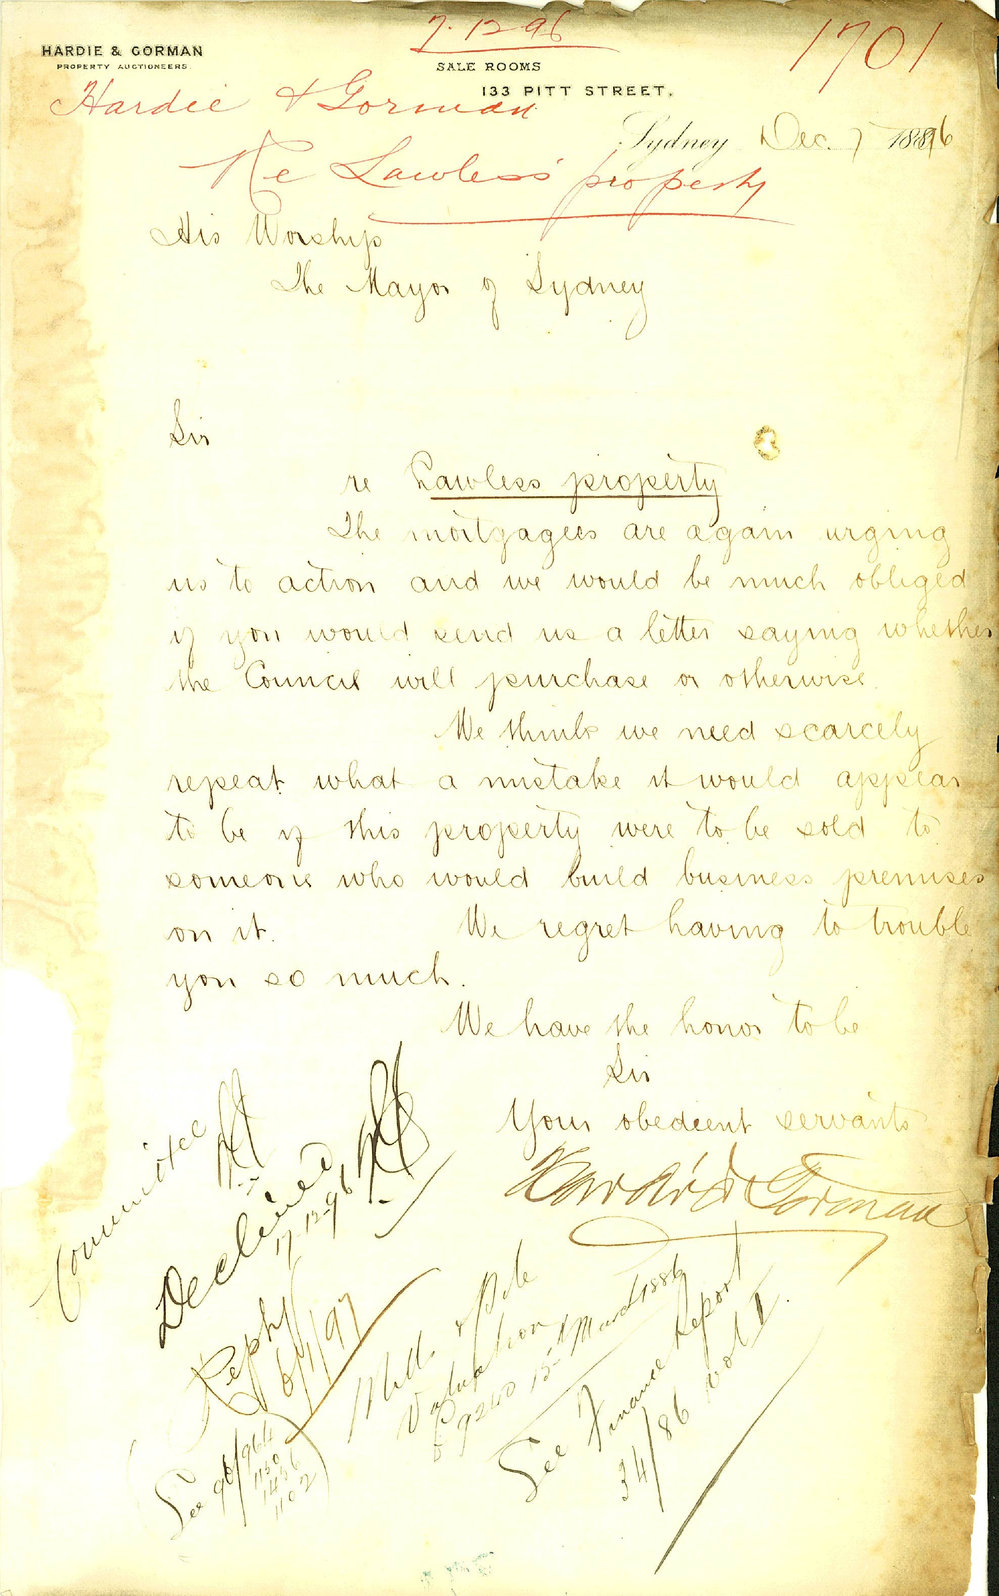 7.12.96
1701
HARDIE & GORMAN
PROPERTY AUCTIONEERS.
SALE ROOMS
133 PITT STREET.
Hardie & Gorman
Sydney Dec. 7 1896
Re Lawless' property
His Worship
The Mayor of Sydney
Sir
re Lawless property
The mortgagees are again urging
us to action and we would be much obliged
if you would send us a letter saying whether
the Council will purchase or otherwise.
We think we need scarcely
repeat what a mistake it would appear
to be if this property were to be sold to
someone who would build business premises
on it. We regret having to trouble
you so much.
We have the honor to be
Sir
Your obedient servants
Hardie & Gorman
Committee
Declined
17.12.96
Reply
6/1/97
Mills & Pile
Valuation
£9240 15th March 1886
See Finance Report
34/86 Vol I.
(See 96/964
1130
1436
1102)